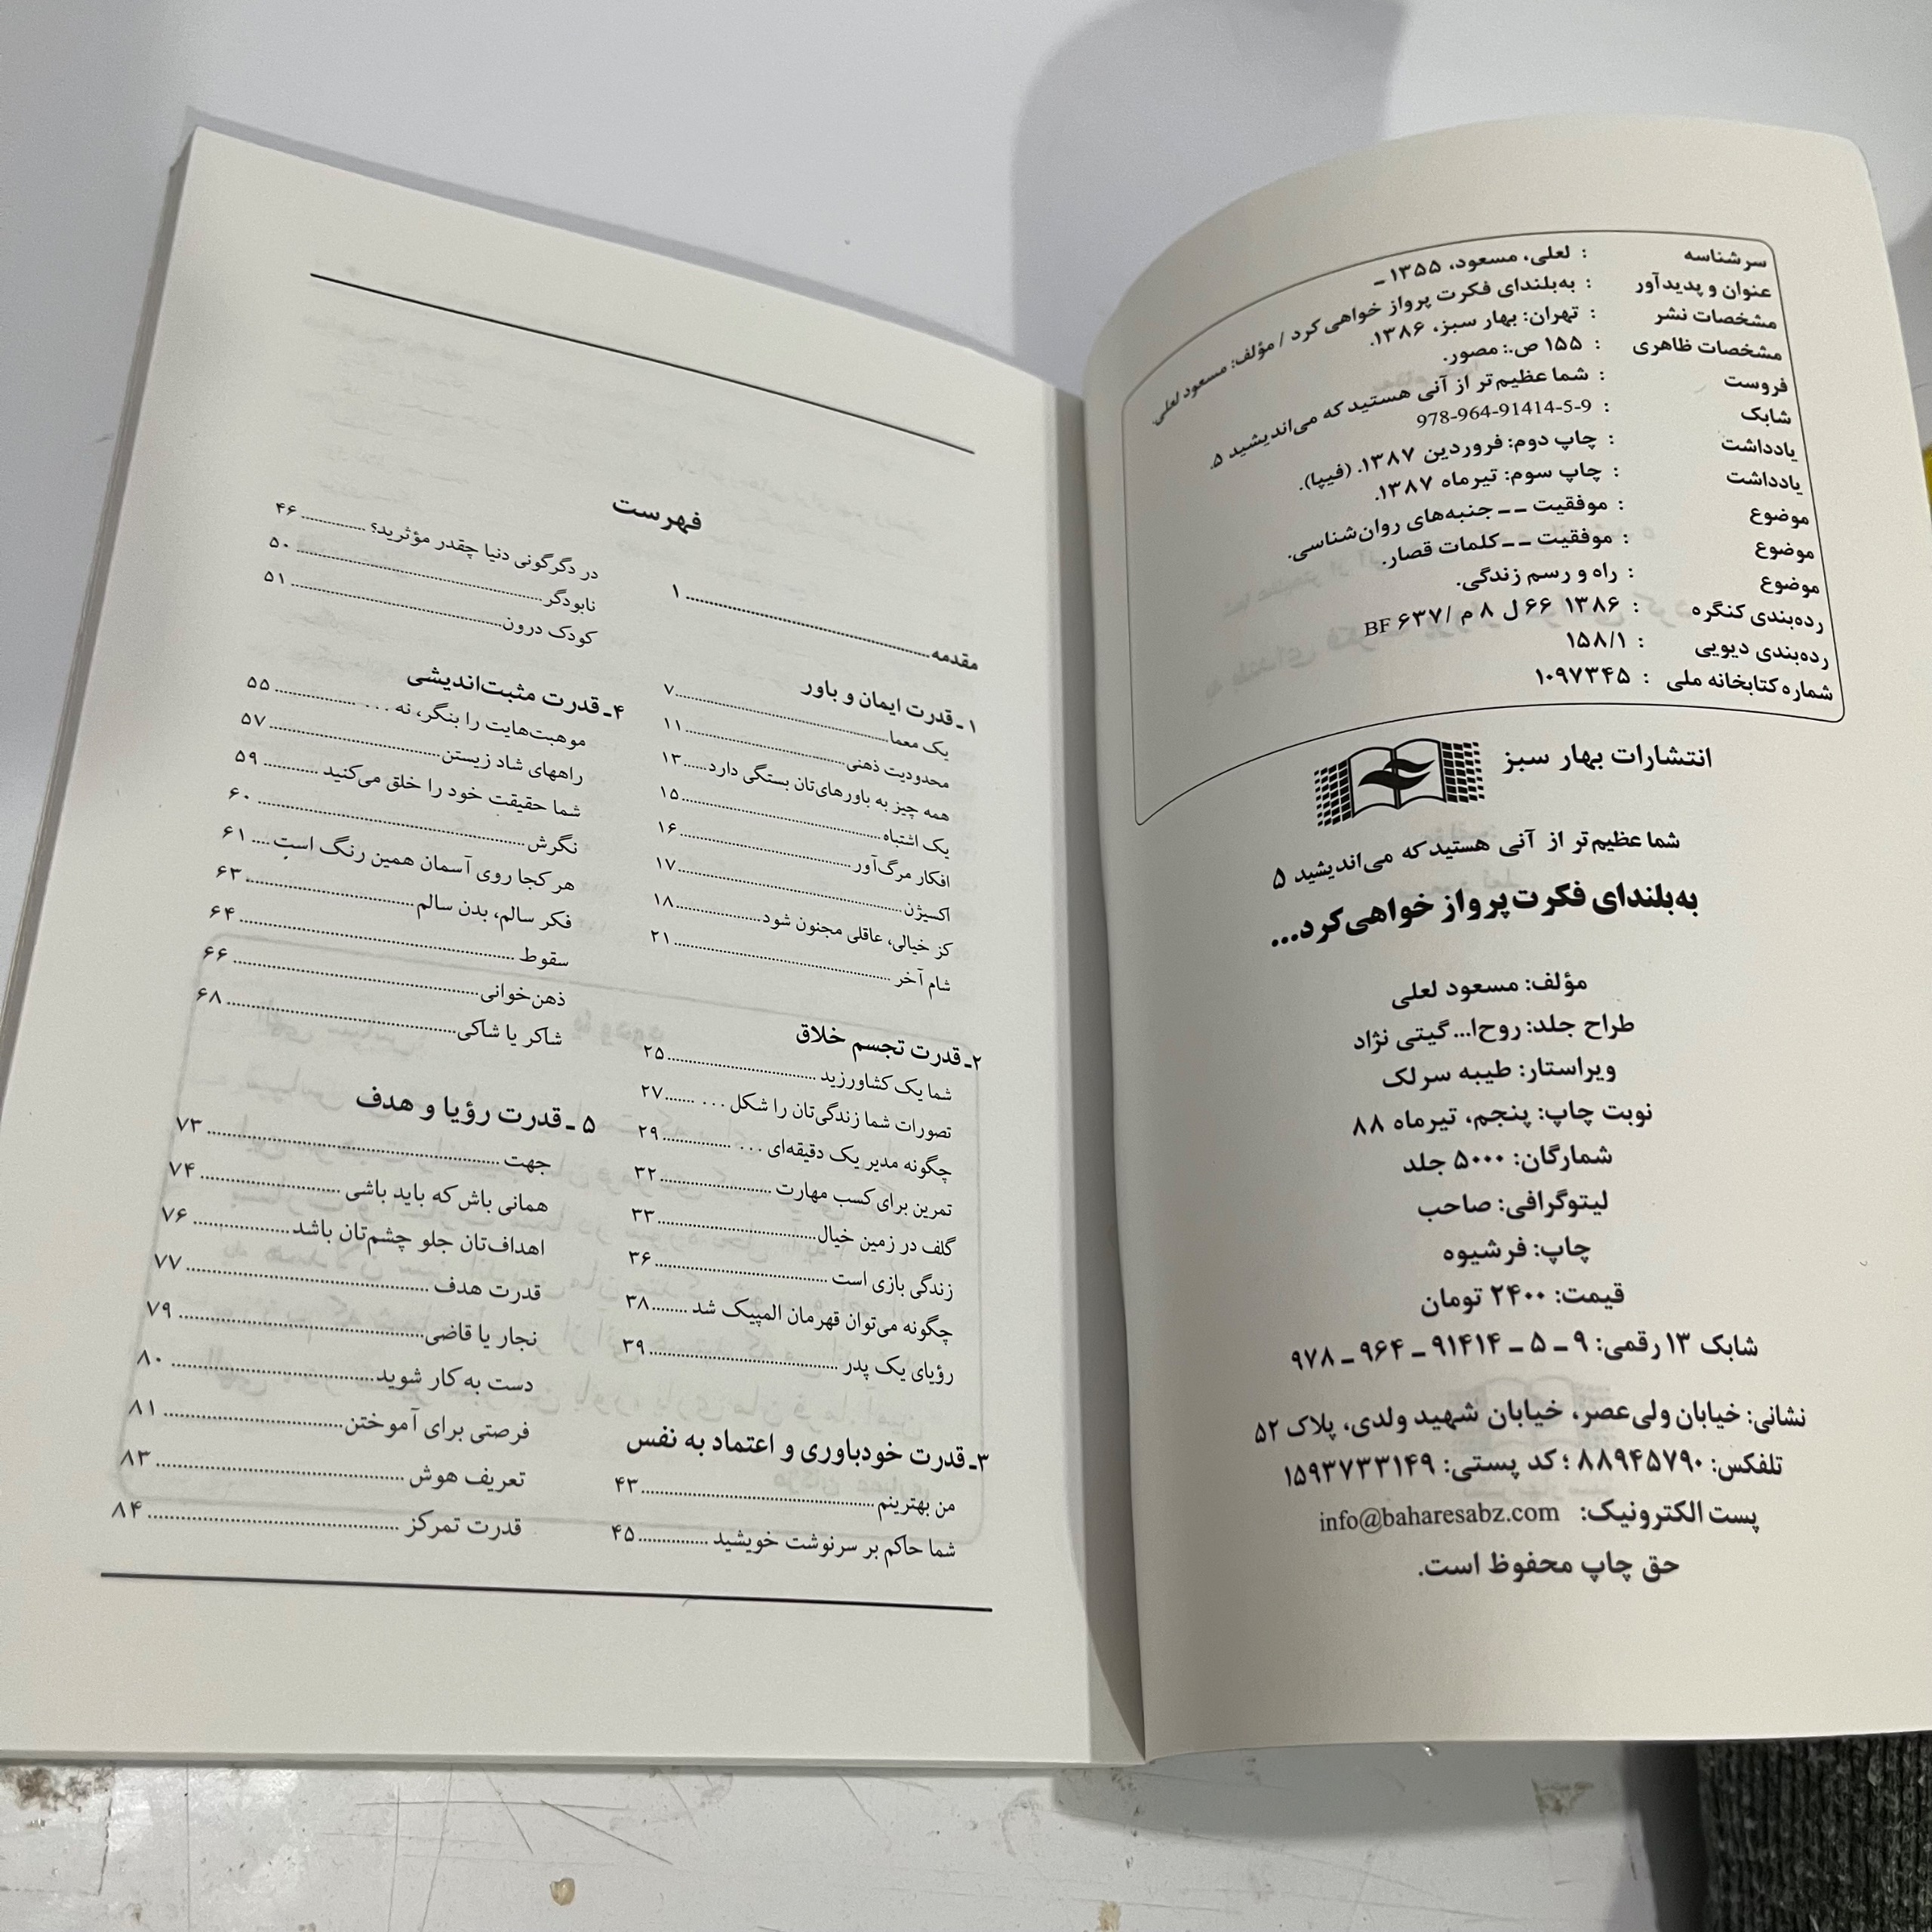 سرشناسه : لعلی، مسعود، ۱۳۵۵ ـ
عنوان و پدیدآور : به‌بلندای فکرت پرواز خواهی‌کرد / مؤلف: مسعود لعلی.
مشخصات نشر : تهران: بهار سبز، ۱۳۸۶.
مشخصات ظاهری : ۱۵۵ ص.: مصور.
فروست : شما عظیم‌تر از آنی هستید که می‌اندیشید ۵.
شابک : 978-964-91414-5-9
یادداشت : چاپ دوم: فروردین ۱۳۸۷. (فیپا).
یادداشت : چاپ سوم: تیرماه ۱۳۸۷.
موضوع : موفقیت ــ جنبه‌های روان‌شناسی.
موضوع : موفقیت ــ کلمات قصار.
موضوع : راه و رسم زندگی.
رده‌بندی کنگره : ۱۳۸۶ ۶۶ ل ۸ م /۶۳۷ BF
رده‌بندی دیویی : ۱۵۸/۱
شماره کتابخانه ملی : ۱۰۹۷۳۴۵
انتشارات بهار سبز
شما عظیم‌تر از آنی هستید که می‌اندیشید ۵
به‌بلندای فکرت پرواز خواهی‌کرد...
مؤلف: مسعود لعلی
طراح جلد: روح‌ا... گیتی نژاد
ویراستار: طیبه سرلک
نوبت چاپ: پنجم، تیرماه ۸۸
شمارگان: ۵۰۰۰ جلد
لیتوگرافی: صاحب
چاپ: فرشیوه
قیمت: ۲۴۰۰ تومان
شابک ۱۳ رقمی: ۹ ـ ۵ ـ ۹۱۴۱۴ ـ ۹۶۴ ـ ۹۷۸
نشانی: خیابان ولی‌عصر، خیابان شهید ولدی، پلاک ۵۲
تلفکس: ۸۸۹۴۵۷۹۰ ؛ کد پستی: ۱۵۹۳۷۳۳۱۴۹
پست الکترونیک: info@baharesabz.com
حق چاپ محفوظ است.
فهرست
مقدمه ........ ۱
۱ـ قدرت ایمان و باور
یک معما ........ ۷
محدودیت ذهنی ........ ۱۱
همه چیز به باورهای‌تان بستگی دارد ...... ۱۳
یک اشتباه ........ ۱۵
افکار مرگ‌آور ........ ۱۶
اکسیژن ........ ۱۷
کز خیالی، عاقلی مجنون شود ........ ۱۸
شام آخر ........ ۲۱
۲ـ قدرت تجسم خلاق
شما یک کشاورزید ........ ۲۵
تصورات شما زندگی‌تان را شکل . . . ....... ۲۷
چگونه مدیر یک دقیقه‌ای . . . ........ ۲۹
تمرین برای کسب مهارت ........ ۳۲
گلف در زمین خیال ........ ۳۳
زندگی بازی است ........ ۳۶
چگونه می‌توان قهرمان المپیک شد ........ ۳۸
رؤیای یک پدر ........ ۳۹
۳ـ قدرت خودباوری و اعتماد به نفس
من بهترینم ........ ۴۳
شما حاکم بر سرنوشت خویشید ........ ۴۵
در دگرگونی دنیا چقدر مؤثرید؟ ........ ۴۶
نابودگر ........ ۵۰
کودک درون ........ ۵۱
۴ـ قدرت مثبت‌اندیشی
موهبت‌هایت را بنگر، نه . . . ........ ۵۵
راههای شاد زیستن ........ ۵۷
شما حقیقت خود را خلق می‌کنید ........ ۵۹
نگرش ........ ۶۰
هر کجا روی آسمان همین رنگ است .... ۶۱
فکر سالم، بدن سالم ........ ۶۳
سقوط ........ ۶۴
ذهن‌خوانی ........ ۶۶
شاکر یا شاکی ........ ۶۸
۵ ـ قدرت رؤیا و هدف
جهت ........ ۷۳
همانی باش که باید باشی ........ ۷۴
اهداف‌تان جلو چشم‌تان باشد ........ ۷۶
قدرت هدف ........ ۷۷
نجار یا قاضی ........ ۷۹
دست به کار شوید ........ ۸۰
فرصتی برای آموختن ........ ۸۱
تعریف هوش ........ ۸۳
قدرت تمرکز ........ ۸۴